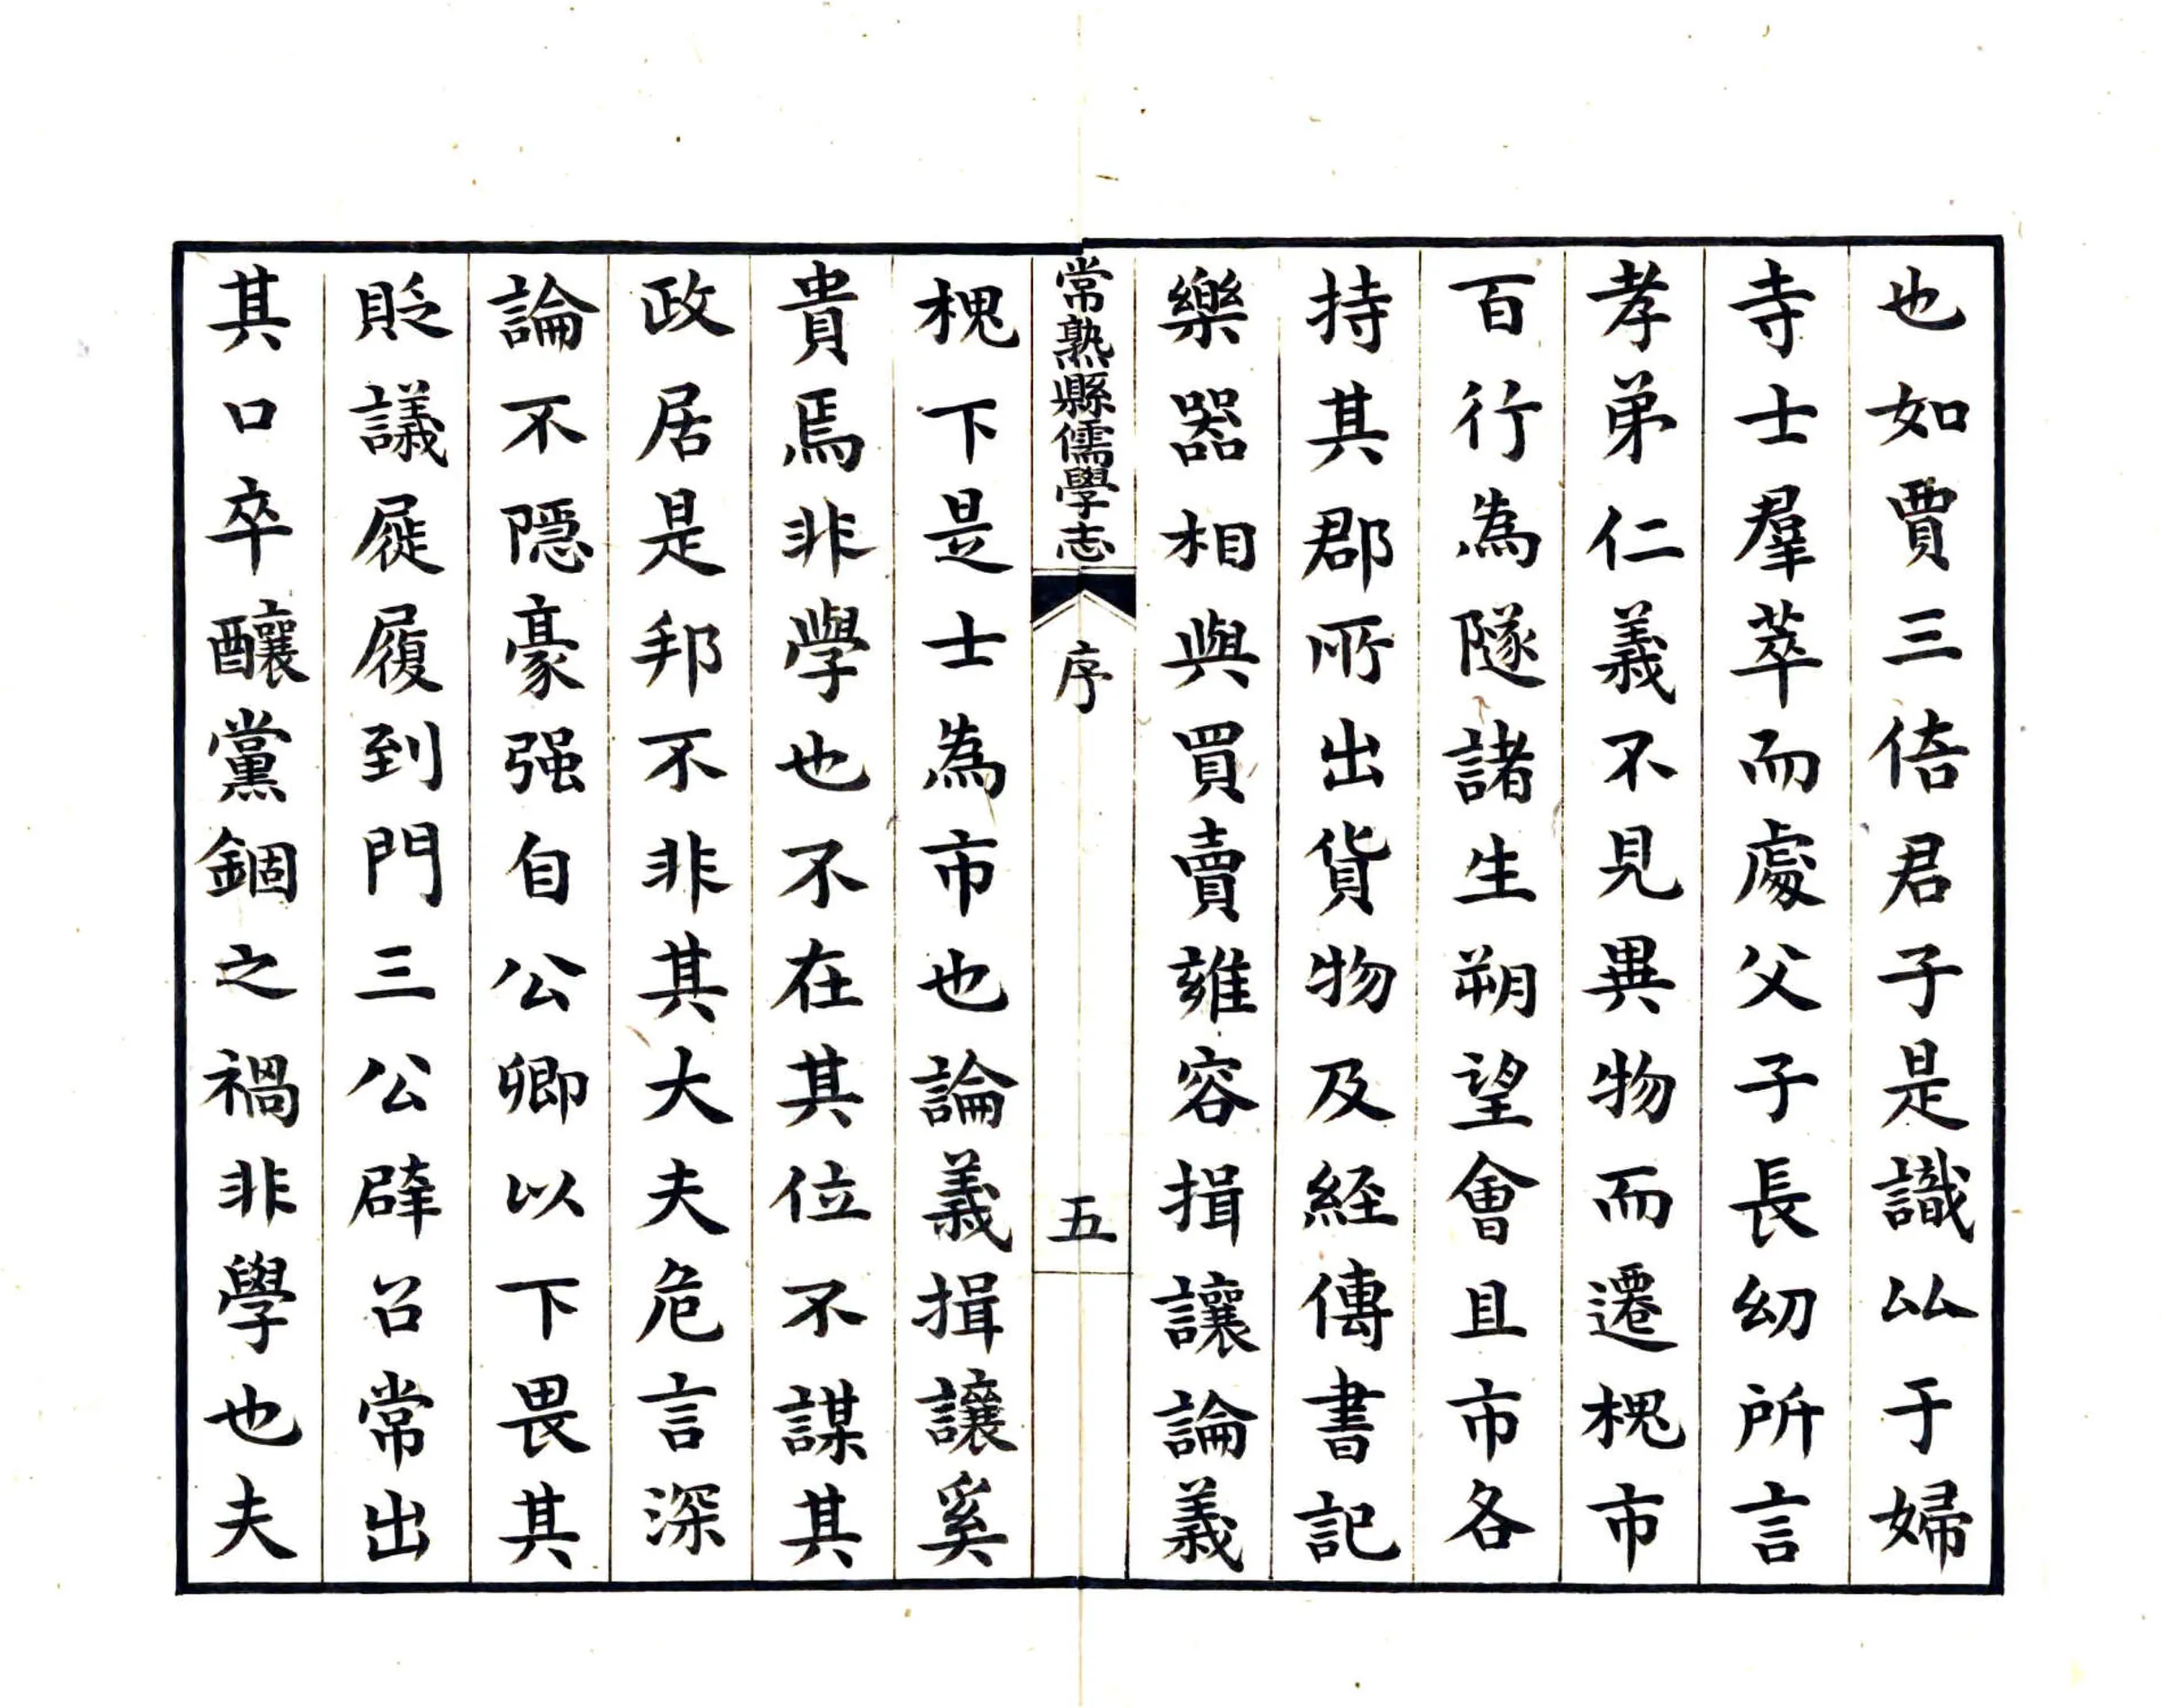 也如賈三倍君子是識㕥于婦
寺士羣萃而處父子長幼所言
孝弟仁義不見異物而遷槐市
百行為隧諸生朔望會且市各
持其郡所出貨物及經傳書記
樂器相與買賣雍容揖讓論義
常熟縣儒學志
序
五
槐下是士為市也論義揖讓奚
貴焉非學也不在其位不謀其
政居是邦不非其大夫危言深
論不隱豪强自公卿以下畏其
貶議屣履到門三公辟召常出
其口卒釀黨錮之禍非學也夫